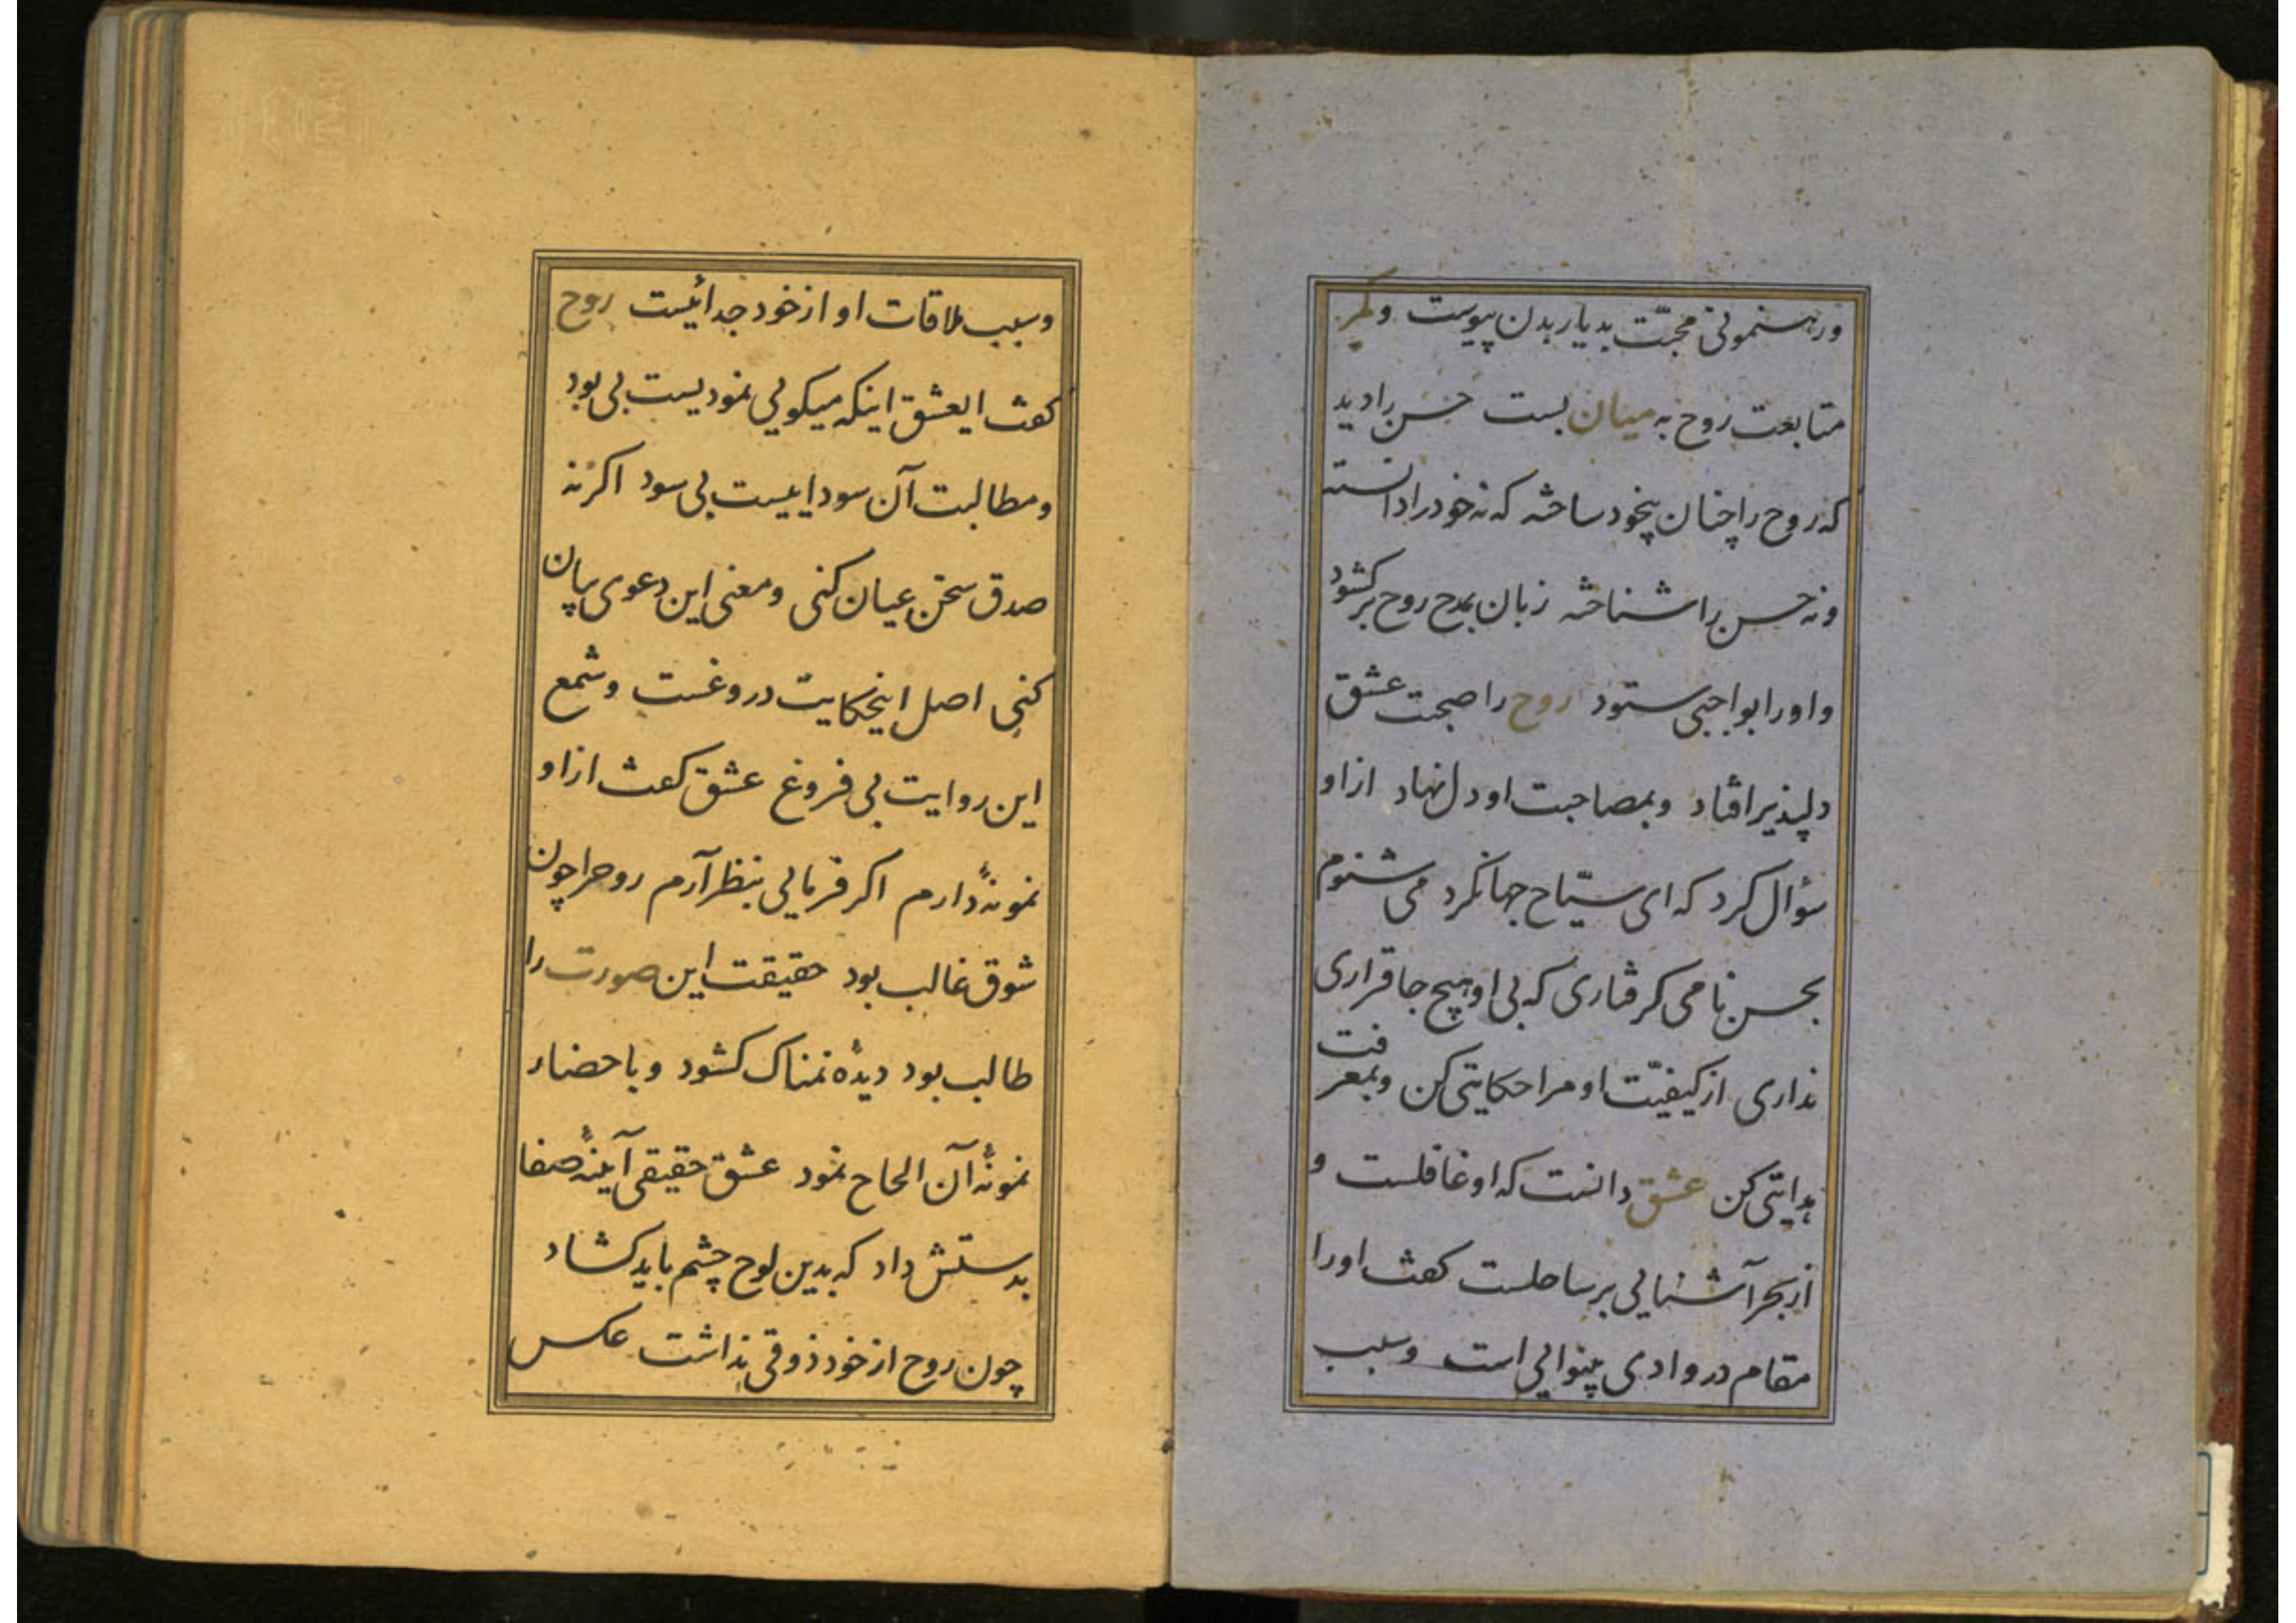 ورهنمونی محبّت بدیار بدن پیوست و کمر
متابعت روح به میان بست حسن را دید
که روح را چنان بیخود ساخته که نه خود را دانسته
و نه حسن را شناخته زبان بمدح روح برکشود
و او را بواجبی ستود روح را صحبت عشق
دلپذیر افتاد و بمصاحبت او دل نهاد از او
سؤال کرد که ای سیّاح جهانکرد می شنوم
بحسن نامی کرفتاری که بی او هیچ جا قراری
نداری از کیفیّت او مرا حکایتی کن و بمعرفت
هدایتی کن عشق دانست که او غافلست و
از بحر آشنایی بر ساحلست کفت او را
مقام در وادی بینوایی است و سبب
و سبب ملاقات او از خود جدائیست روح
کفت ایعشق اینکه میکویی نمودیست بی بود
و مطالبت آن سوداییست بی سود اکر نه
صدق سخن عیان کنی و معنی این دعوی بیان
کنی اصل اینحکایت دروغست و شمع
این روایت بی فروغ عشق کفت از او
نمونهٔ دارم اکر فرمایی بنظر آرم روحرا چون
شوق غالب بود حقیقت این صورت را
طالب بود دیدهٔ نمناک کشود و باحضار
نمونهٔ آن الحاح نمود عشق حقیقی آیینهٔ صفا
بدستش داد که بدین لوح چشم باید کشاد
چون روح از خود ذوقی نداشت عکس